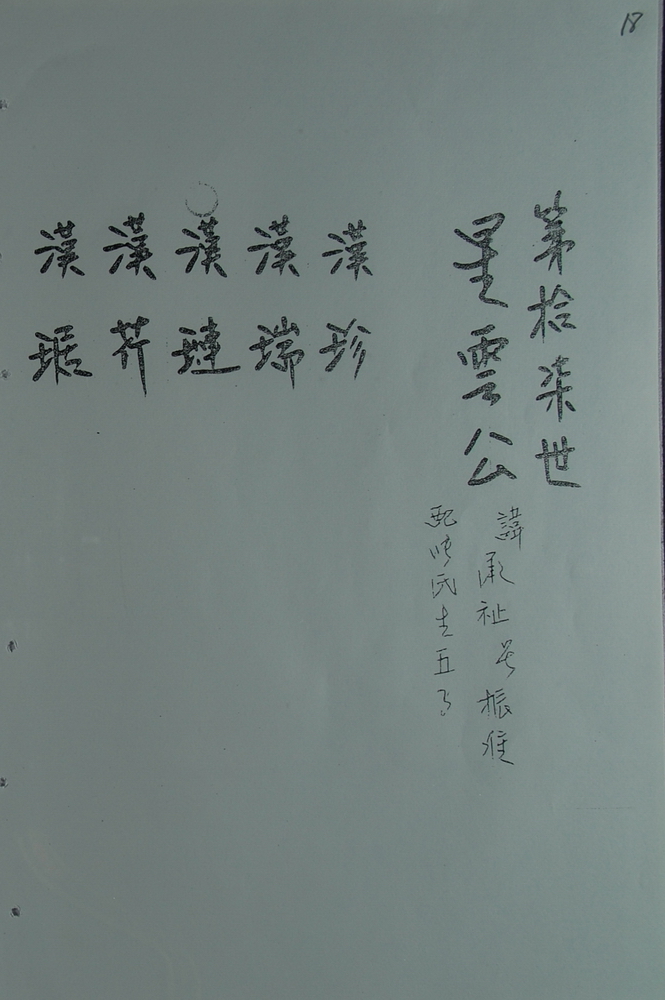 18
第拾柒世
星雲公
諱承祉号振
配氏生五子
漢珍
漢瑞
漢璉
漢芥
漢